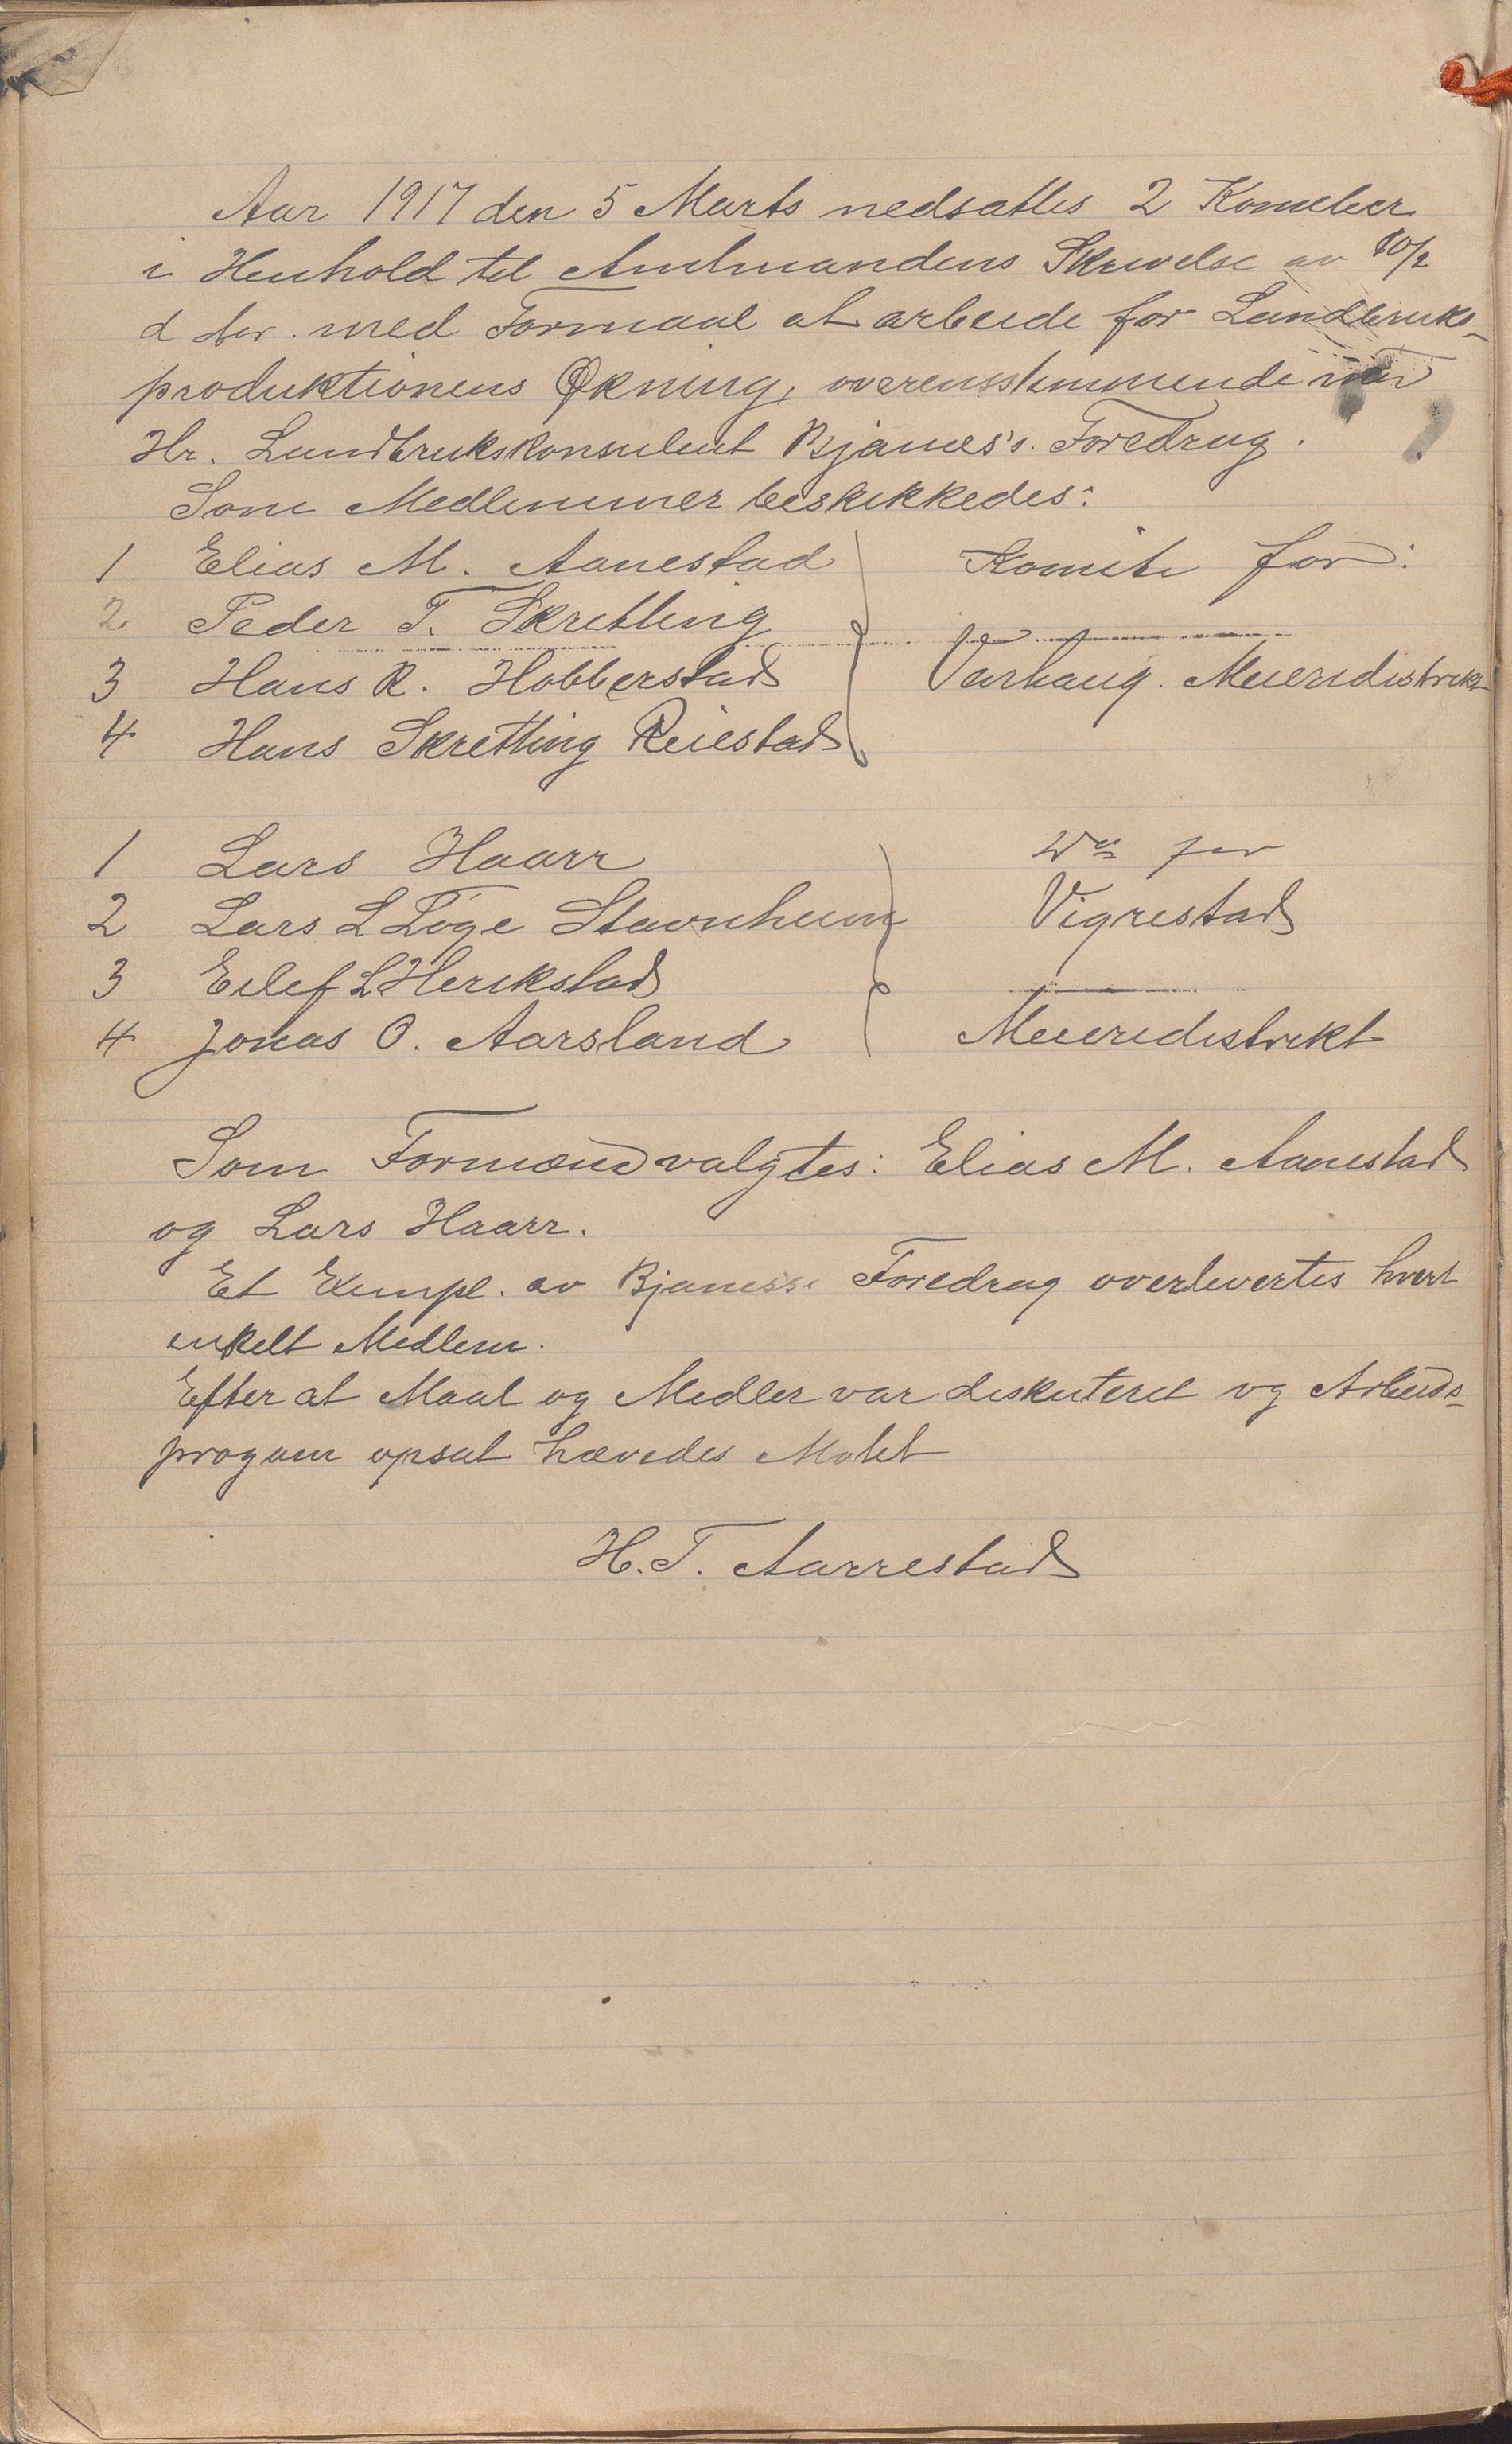 Aar 1917 den 5 Marts nedsattes 2 Komiteer
i Henhold til Amtmandens Skrivelse av 10/2
d Aar. med Formaal at arbeide for Landbruks-
produktionens Økning, overensstemmende med
Hr. Landbrukskonsulent Bjanes's. Foredrag.
Som Medlemmer beskikkedes:
1 Elias M. Aanestad Komite for:
2 Peder T. Skretting
3 Hans R. Hobberstad Varhaug Meieridistrikt
4 Hans Skretting Reiestad
1 Lars Haarr do for
2 Lars L Töge Stavnheim Vigrestad
3 Eilef L Herikstad
4 Jonas O. Aarsland Meieridistrikt
Som Formænd valgtes: Elias M. Aanestad
og Lars Haarr.
Et Exempl. av Bjanes's Foredrag overlevertes hvert
enkelt Medlem.
Efter at Maal og Midler var diskuteret og Arbeids-
progam opsat hævedes Motet
H. T. Aarrestad